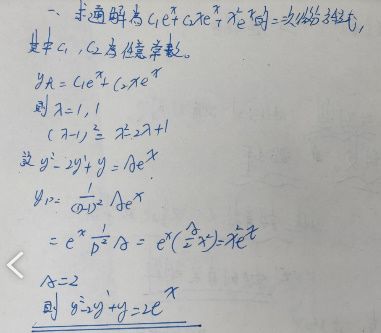 一、求通解为C₁eˣ+C₂xeˣ+x²eˣ的二次微分方程式,
其中C₁,C₂为任意常数。
yₕ=C₁eˣ+C₂xeˣ
则λ=1,1
(λ-1)²=λ²-2λ+1
设y''-2y'+y=Aeˣ
yₚ=1/(D-1)² Aeˣ
=eˣ 1/D² A=eˣ(A/2 x²)=x²eˣ
A=2
则 y''-2y'+y=2eˣ